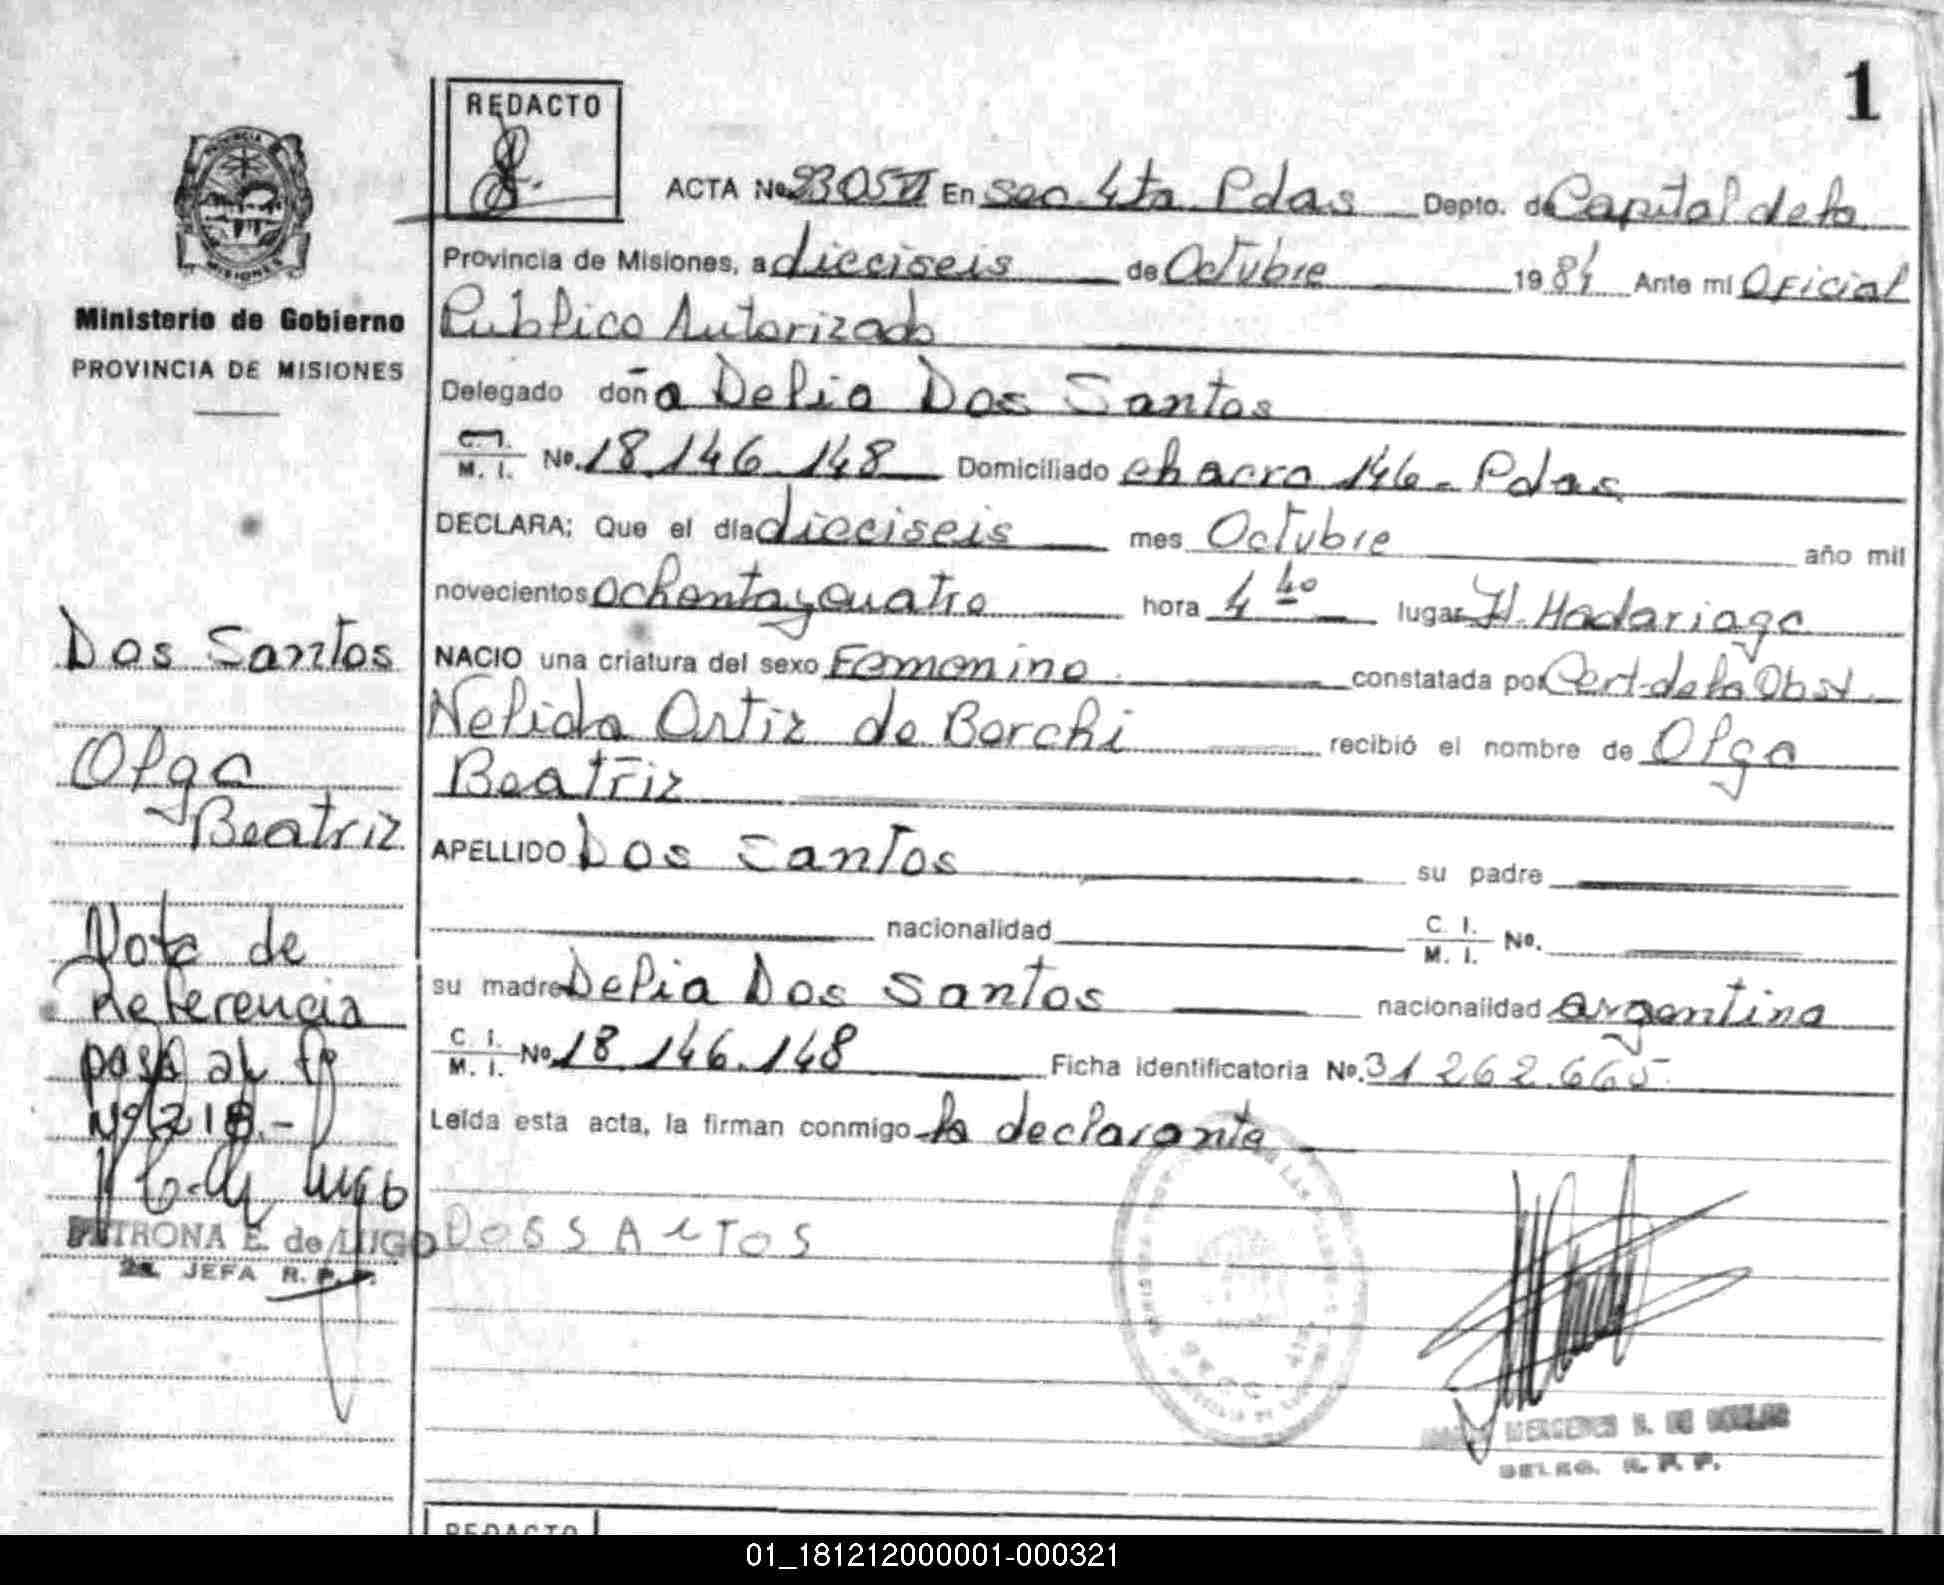 1
REDACTO
ACTA No. 2305 VI En sec. 4ta Pdas Depto. de Capital de la
Provincia de Misiones, a dieciseis de Octubre 1984 Ante mi Oficial
Publico Autorizado
Delegado doña Delia Dos Santos
C. I.
M. I. No. 18.146.148 Domiciliado chacra 146 - Pdas
DECLARA; Que el día dieciseis mes Octubre año mil
novecientos ochenta y cuatro hora 4 40 lugar H. Madariaga
NACIO una criatura del sexo Femenino constatada por Cert. de la Obst.
Nelida Ortiz de Borchi recibió el nombre de Olga
Beatriz
APELLIDO Dos Santos su padre
nacionalidad C. I. M. I. No.
su madre Delia Dos Santos nacionalidad argentina
C. I. M. I. No. 18.146.148 Ficha identificatoria No. 31 262.665
Leída esta acta, la firman conmigo la declarante
DOSSANTOS
DELEG. R. P. P.
PROVINCIA
MISIONES
Ministerio de Gobierno
PROVINCIA DE MISIONES
Dos Santos
Olga
Beatriz
Nota de
Referencia
pasa al fº
Nº 218.-
PETRONA E. de LUGO
2a. JEFA R. P. P.
REDACTO
01_181212000001-000321